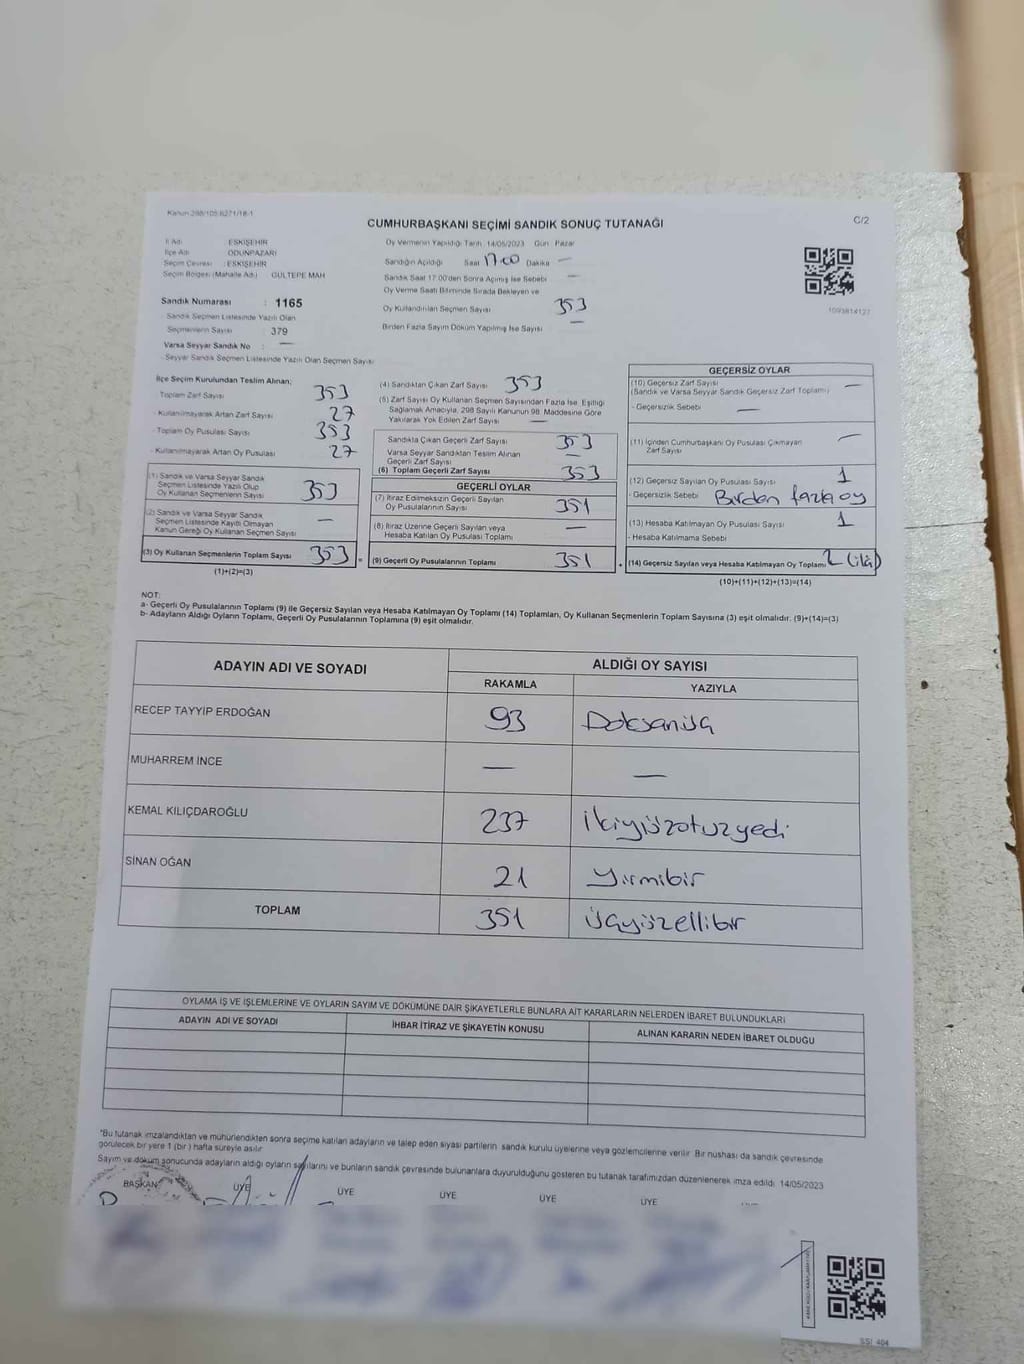 Kanun 298/105.6271/18-1
CUMHURBAŞKANI SEÇİMİ SANDIK SONUÇ TUTANAĞI
C/2
İl Adı : ESKİŞEHİR
İlçe Adı : ODUNPAZARI
Seçim Çevresi : ESKİŞEHİR
Seçim Bölgesi (Mahalle Adı) : GÜLTEPE MAH
Sandık Numarası : 1165
- Sandık Seçmen Listesinde Yazılı Olan
Seçmenlerin Sayısı : 379
Varsa Seyyar Sandık No : —
- Seyyar Sandık Seçmen Listesinde Yazılı Olan Seçmen Sayısı
Oy Vermenin Yapıldığı Tarih 14/05/2023 Gün Pazar
Sandığın Açıldığı Saat 17:00 Dakika —
Sandık Saat 17:00'den Sonra Açılmış İse Sebebi —
Oy Verme Saati Bitiminde Sırada Bekleyen ve
Oy Kullandırılan Seçmen Sayısı 353
Birden Fazla Sayım Döküm Yapılmış İse Sayısı —
1093814127
İlçe Seçim Kurulundan Teslim Alınan;
Toplam Zarf Sayısı 353
- Kullanılmayarak Artan Zarf Sayısı 27
- Toplam Oy Pusulası Sayısı 353
- Kullanılmayarak Artan Oy Pusulası 27
(1) Sandık ve Varsa Seyyar Sandık
Seçmen Listesinde Yazılı Olup
Oy Kullanan Seçmenlerin Sayısı 353
(2) Sandık ve Varsa Seyyar Sandık
Seçmen Listesinde Kayıtlı Olmayan
Kanun Gereği Oy Kullanan Seçmen Sayısı —
(3) Oy Kullanan Seçmenlerin Toplam Sayısı 353
(1)+(2)=(3)
(4) Sandıktan Çıkan Zarf Sayısı 353
(5) Zarf Sayısı Oy Kullanan Seçmen Sayısından Fazla İse, Eşitliği
Sağlamak Amacıyla, 298 Sayılı Kanunun 98. Maddesine Göre
Yakılarak Yok Edilen Zarf Sayısı —
Sandıkta Çıkan Geçerli Zarf Sayısı 353
Varsa Seyyar Sandıktan Teslim Alınan
Geçerli Zarf Sayısı —
(6) Toplam Geçerli Zarf Sayısı 353
GEÇERLİ OYLAR
(7) İtiraz Edilmeksizin Geçerli Sayılan
Oy Pusulalarının Sayısı 351
(8) İtiraz Üzerine Geçerli Sayılan veya
Hesaba Katılan Oy Pusulası Toplamı —
(9) Geçerli Oy Pusulalarının Toplamı 351
GEÇERSİZ OYLAR
(10) Geçersiz Zarf Sayısı
(Sandık ve Varsa Seyyar Sandık Geçersiz Zarf Toplamı) —
- Geçersizlik Sebebi —
(11) İçinden Cumhurbaşkanı Oy Pusulası Çıkmayan
Zarf Sayısı —
(12) Geçersiz Sayılan Oy Pusulası Sayısı 1
- Geçersizlik Sebebi Birden fazla oy
(13) Hesaba Katılmayan Oy Pusulası Sayısı 1
- Hesaba Katılmama Sebebi
(14) Geçersiz Sayılan veya Hesaba Katılmayan Oy Toplamı 2 (iki)
(10)+(11)+(12)+(13)=(14)
NOT:
a- Geçerli Oy Pusulalarının Toplamı (9) ile Geçersiz Sayılan veya Hesaba Katılmayan Oy Toplamı (14) Toplamları, Oy Kullanan Seçmenlerin Toplam Sayısına (3) eşit olmalıdır. (9)+(14)=(3)
b- Adayların Aldığı Oyların Toplamı, Geçerli Oy Pusulalarının Toplamına (9) eşit olmalıdır.
ADAYIN ADI VE SOYADI
ALDIĞI OY SAYISI
RAKAMLA YAZIYLA
RECEP TAYYİP ERDOĞAN 93 Doksanüç
MUHARREM İNCE — —
KEMAL KILIÇDAROĞLU 237 ikiyüzotuzyedi
SİNAN OĞAN 21 Yirmibir
TOPLAM 351 üçyüzellibir
OYLAMA İŞ VE İŞLEMLERİNE VE OYLARIN SAYIM VE DÖKÜMÜNE DAİR ŞİKAYETLERLE BUNLARA AİT KARARLARIN NELERDEN İBARET BULUNDUKLARI
ADAYIN ADI VE SOYADI İHBAR İTİRAZ VE ŞİKAYETİN KONUSU ALINAN KARARIN NEDEN İBARET OLDUĞU
*Bu tutanak imzalandıktan ve mühürlendikten sonra seçime katılan adayların ve talep eden siyasi partilerin sandık kurulu üyelerine veya gözlemcilerine verilir. Bir nüshası da sandık çevresinde
görülecek bir yere 1 (bir) hafta süreyle asılır
Sayım ve döküm sonucunda adayların aldığı oyların sayılarını ve bunların sandık çevresinde bulunanlara duyurulduğunu gösteren bu tutanak tarafımızdan düzenlenerek imza edildi. 14/05/2023
BAŞKAN ÜYE ÜYE ÜYE ÜYE ÜYE